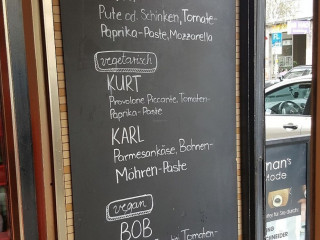 Pute od. Schinken, Tomate-
Paprika-Paste, Mozzarella
vegetarisch
KURT
Provolone Piccante, Tomaten-
Paprika-Paste
KARL
Parmesankäse, Bohnen-
Möhren-Paste
vegan
BOB
Tomaten-
nan's
Mode